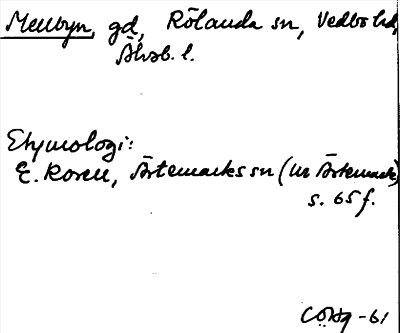 Mellbyn, gd, Rölanda sn, Vedbo hd,
Älvsb. l.
Etymologi:
E. Rosell, Ärtemarks sn (Ur Ärtemark)
s. 65 f.
-61